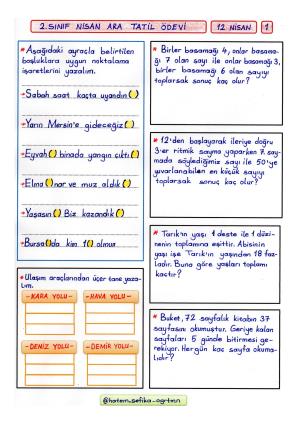 2.SINIF NİSAN ARA TATİL ÖDEVİ
12 NİSAN
1
* Aşağıdaki ayraçla belirtilen
boşluklara uygun noktalama
işaretlerini yazalım.
→Sabah saat kaçta uyandın( )
→Yarın Mersin'e gideceğiz( )
→Eyvah( ) binada yangın çıktı( )
→Elma( )nar ve muz aldık( )
→Yaşasın( ) Biz kazandık( )
→Bursa( )da kim 1( ) olmuş
* Ulaşım araçlarından üçer tane yaza-
lım.
-KARA YOLU-
-HAVA YOLU-
-DENİZ YOLU-
-DEMİR YOLU-
* Birler basamağı 4, onlar basama-
ğı 7 olan sayı ile onlar basamağı 3,
birler basamağı 6 olan sayıyı
toplarsak sonuç kaç olur?
* 12'den başlayarak ileriye doğru
3'er ritmik sayma yaparken 7. say-
mada söylediğimiz sayı ile 50'ye
yuvarlanabilen en küçük sayıyı
toplarsak sonuç kaç olur?
* Tarık'ın yaşı 1 deste ile 1 düzi-
nenin toplamına eşittir. Abisinin
yaşı ise Tarık'ın yaşından 18 faz-
ladır. Buna göre yaşları toplamı
kaçtır?
* Buket, 72 sayfalık kitabın 37
sayfasını okumuştur. Geriye kalan
sayfaları 5 günde bitirmesi ge-
rekiyor. Hergün kaç sayfa okuma-
lıdır?
@hatem_sefika_ogrtmn